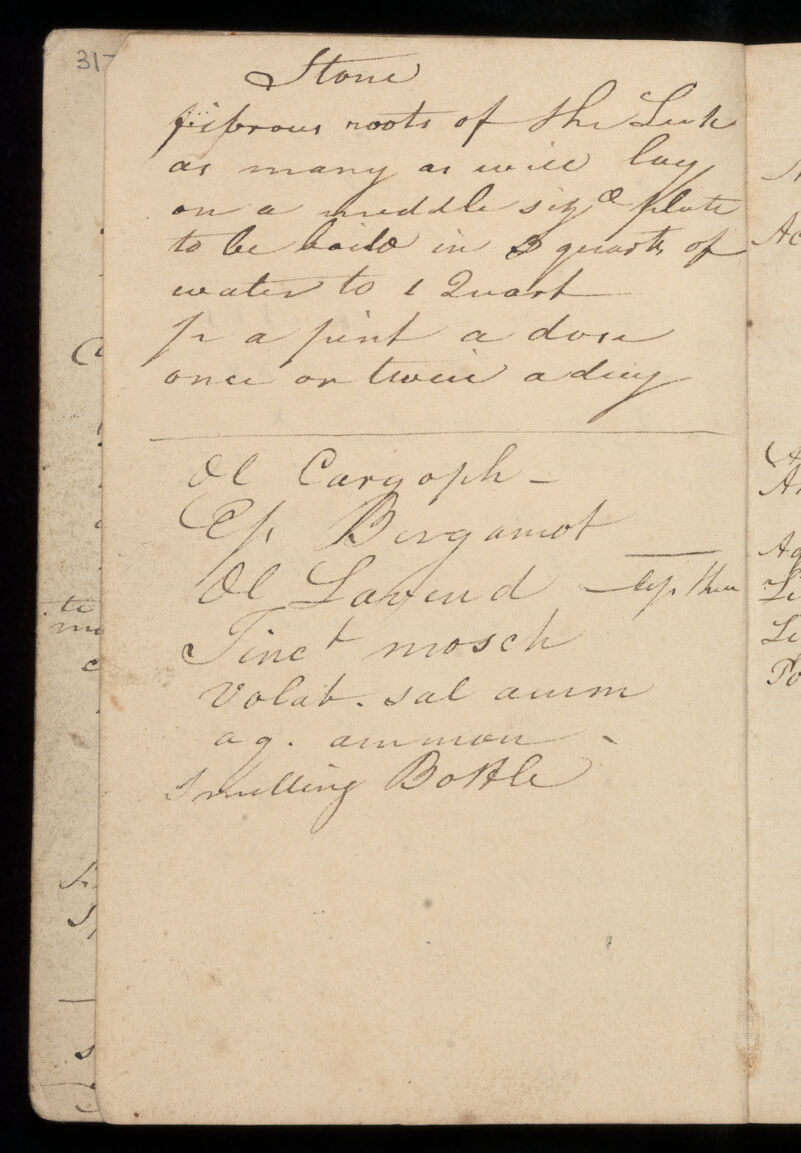 317
Stone
fibrous roots of the Leek
as many as will lay
on a meddle sizd plate
to be boild in 3 quarts of
water to 1 Quart
½ a pint a dose
once or twice a day
Ol Caryoph -
Ess Bergamot
Ol Lavend
Tinct mosch
Volat. sal amm
aq. ammon
Smelling Bottle